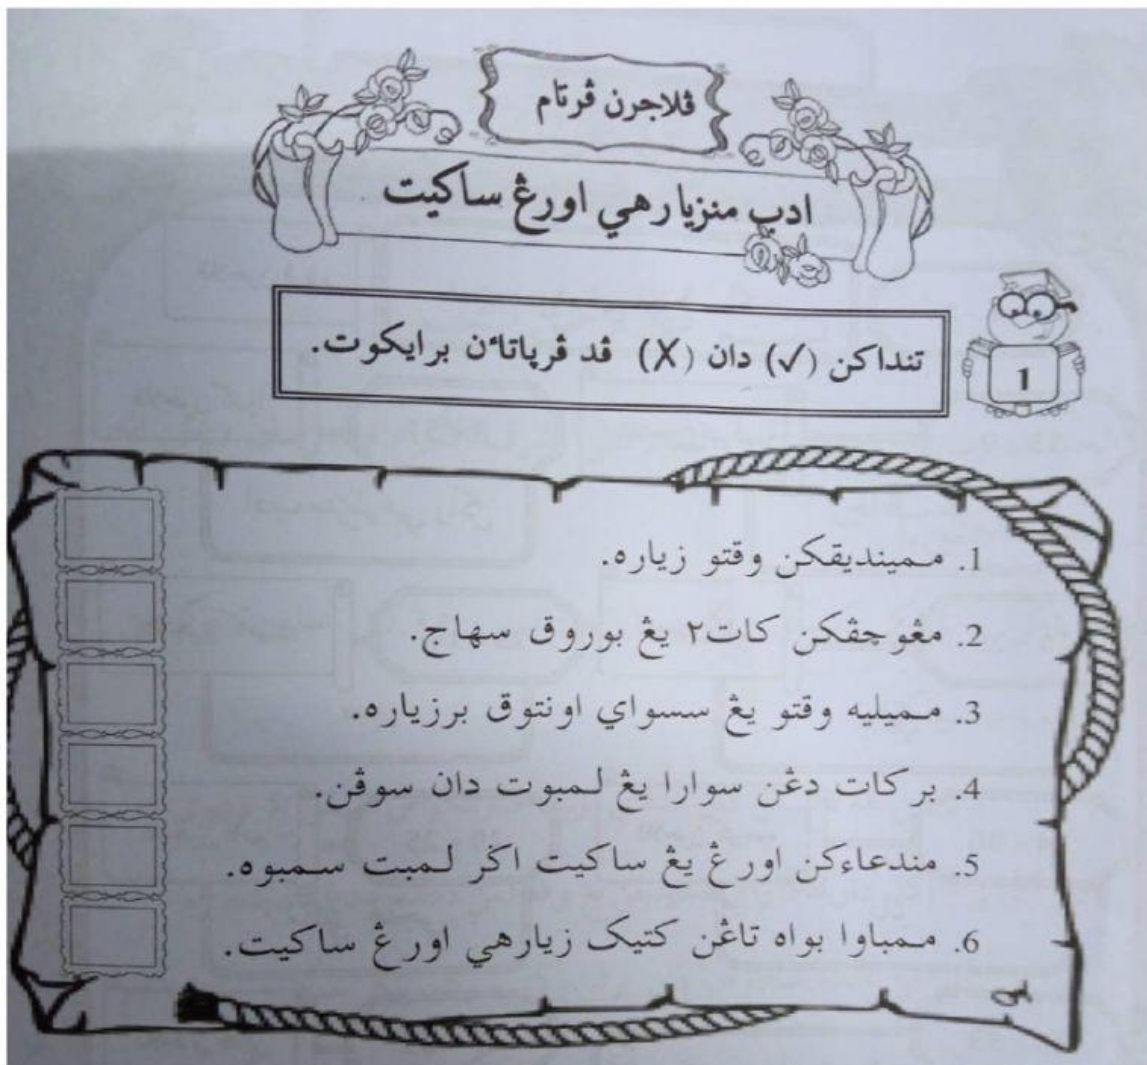 ڤلاجرن ڤرتام
ادب منزيارهي اورڠ ساكيت
تنداكن (✓) دان (X) ڤد ڤرياتاءن برايكوت.
1
1. مـمينديقكن وقتو زياره.
2. مڠوچڤكن كات٢ يڠ بوروق سهاج.
3. مـميليه وقتو يڠ سسواي اونتوق برزياره.
4. بركات دڠن سوارا يڠ لـمبوت دان سوڤن.
5. مندعاءكن اورڠ يڠ ساكيت اݢر لـمبت سـمبوه.
6. مـمباوا بواه تاڠن كتيک زيارهي اورڠ ساكيت.